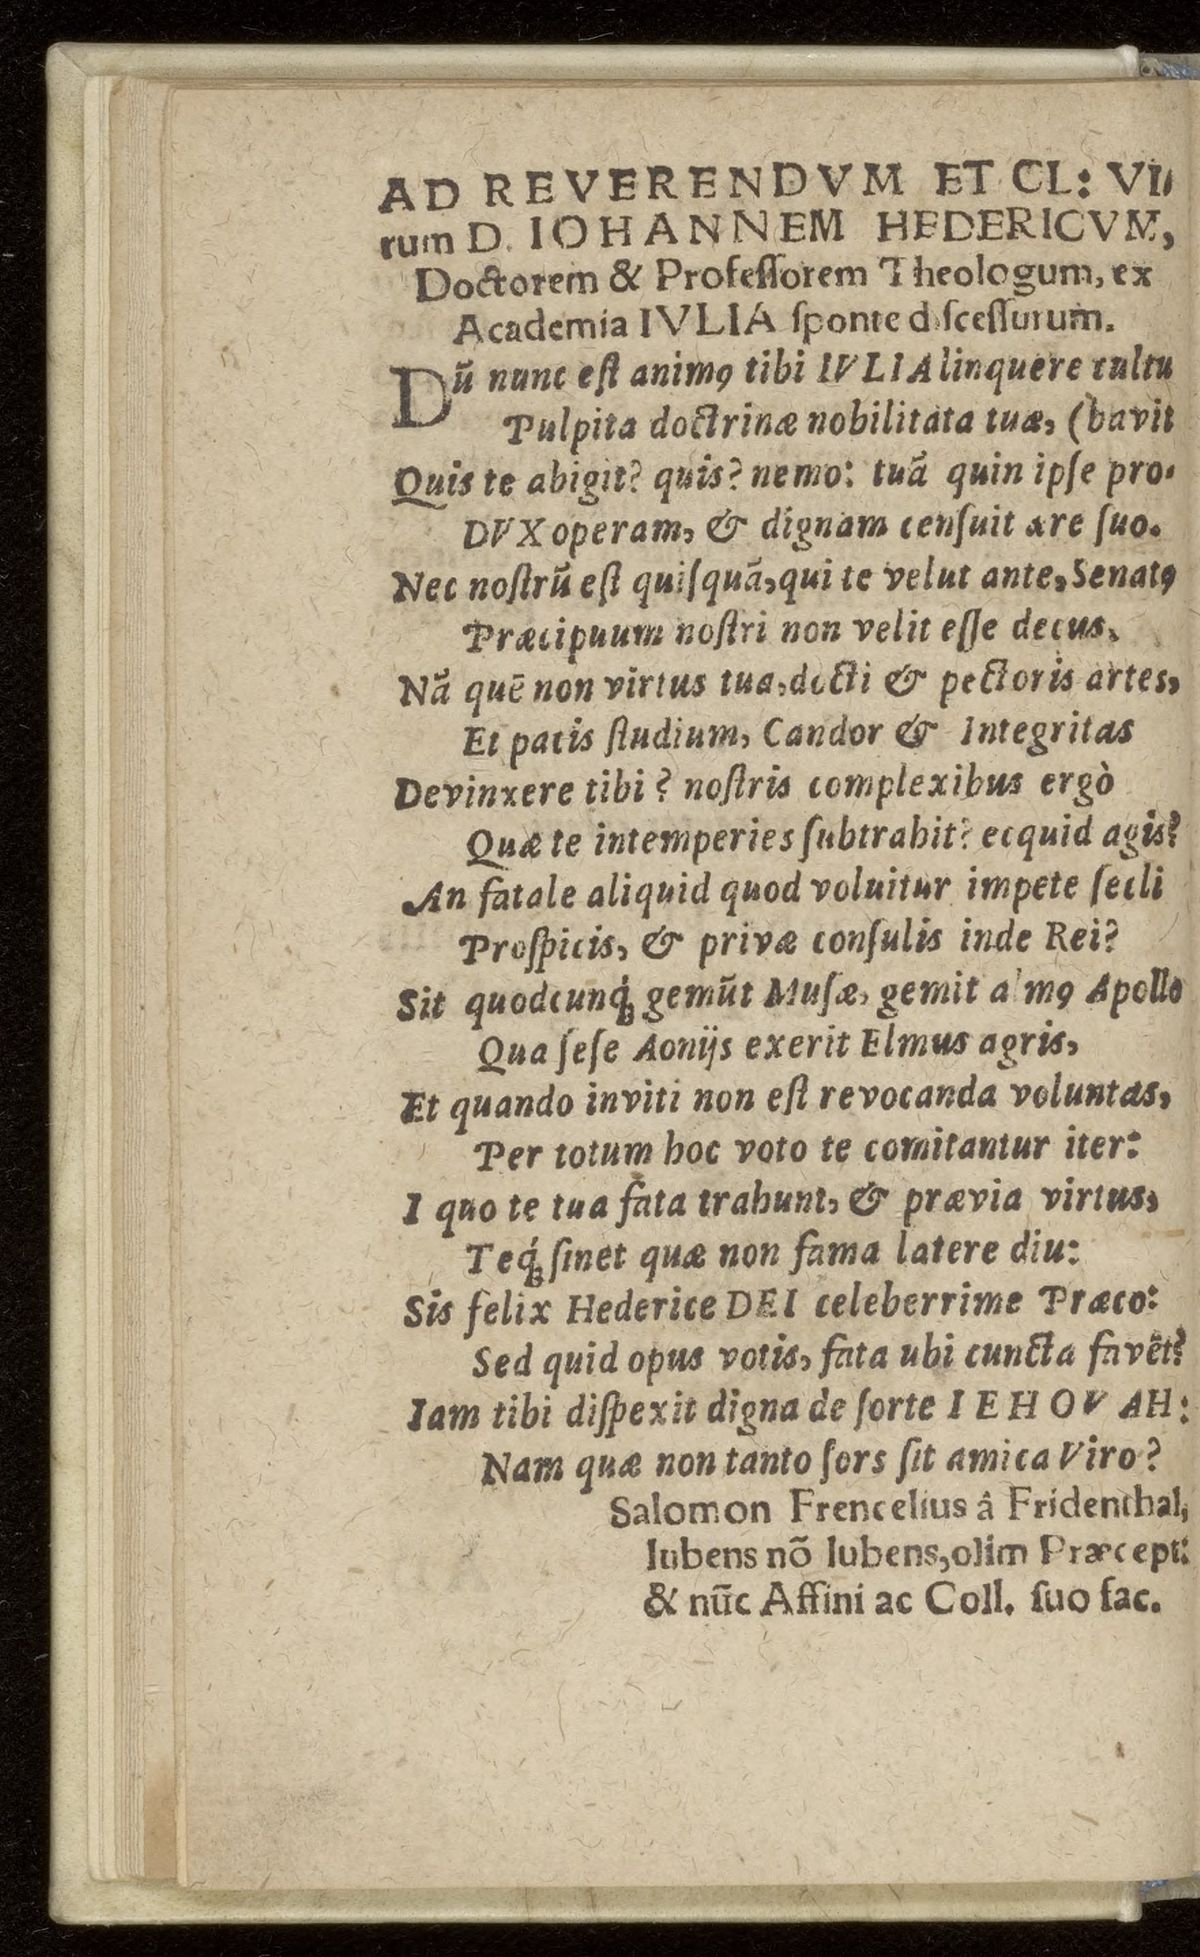 AD REVERENDVM ET CL: VI-
rum D. IOHANNEM HEDERICVM,
Doctorem & Professorem Theologum, ex
Academia IVLIA sponte discessurum.
Dũ nunc est animꝯ tibi IVLIA linquere cultu
Pulpita doctrinæ nobilitata tuæ, (bavit
Quis te abigit? quis? nemo: tuã quin ipse pro-
DVX operam, & dignam censuit ære suo.
Nec nostrũ est quisquã, qui te velut ante, Senatꝯ
Præcipuum nostri non velit esse decus.
Nã quē non virtus tua, docti & pectoris artes,
Et pacis studium, Candor & Integritas
Devinxere tibi? nostris complexibus ergò
Quæ te intemperies subtrahit? ecquid agis?
An fatale aliquid quod voluitur impete secli
Prospicis, & privæ consulis inde Rei?
Sit quodcunq́ꝫ gemũt Musæ, gemit almꝯ Apollo
Qua sese Aonijs exerit Elmus agris,
Et quando inviti non est revocanda voluntas,
Per totum hoc voto te comitantur iter:
I quo te tua fata trahunt, & prævia virtus,
Teq́ꝫ sinet quæ non fama latere diu:
Sis felix Hederice DEI celeberrime Præco:
Sed quid opus votis, fata ubi cuncta favẽt?
Iam tibi dispexit digna de sorte IEHOVAH:
Nam quæ non tanto sors sit amica Viro?
Salomon Frencelius â Fridenthal,
lubens nõ lubens, olim Præcept:
& nũc Affini ac Coll. suo fac.